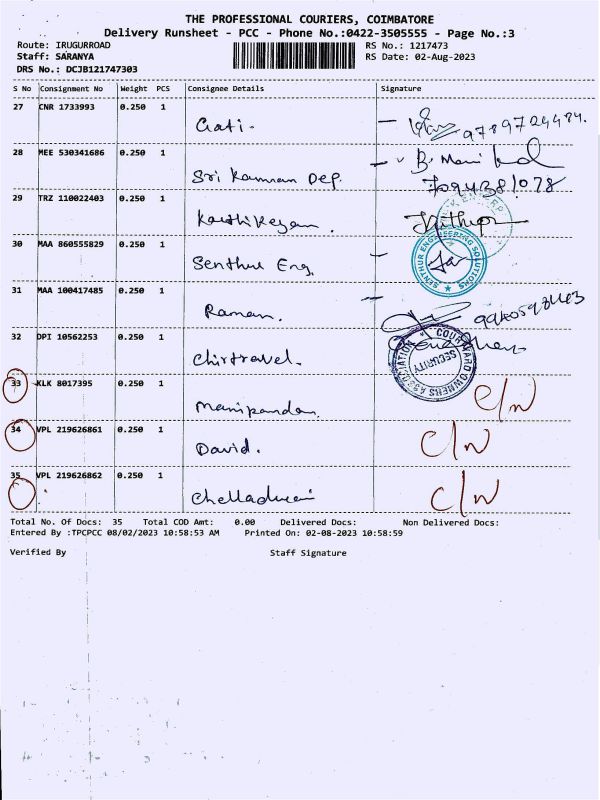 THE PROFESSIONAL COURIERS, COIMBATORE
Delivery Runsheet - PCC - Phone No.:0422-3505555 - Page No.:3
Route: IRUGURROAD RS No.: 1217473
Staff: SARANYA RS Date: 02-Aug-2023
DRS No.: DCJB121747303
S No Consignment No Weight PCS Consignee Details Signature
27 CNR 1733993 0.250 1 Gati. 9789724484.
28 MEE 530341686 0.250 1 Sri Kannan Dep. B. Mani 7094381078
29 TRZ 110022403 0.250 1 Karthikeyan.
30 MAA 860555829 0.250 1 Senthur Eng. SENTHUR ENGINEERING SOLUTIONS
31 MAA 100417485 0.250 1 Raman.
32 DPI 10562253 0.250 1 Chirtravel. COURTYARD OWNERS ASSOCIATION SECURITY
33 KLK 8017395 0.250 1 Manipandan. C/N
34 VPL 219626861 0.250 1 David. C/N
35 VPL 219626862 0.250 1 Chelladurai C/N
Total No. Of Docs: 35 Total COD Amt: 0.00 Delivered Docs: Non Delivered Docs:
Entered By :TPCPCC 08/02/2023 10:58:53 AM Printed On: 02-08-2023 10:58:59
Verified By Staff Signature